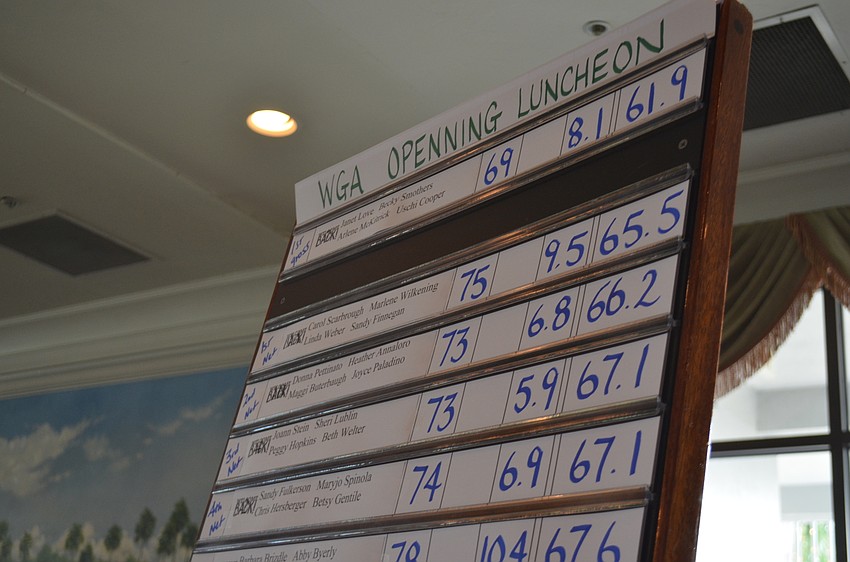 WGA OPENNING LUNCHEON
1st Gross Janet Love Becky Smothers 69 8.1 61.9
Arlene McKitrick Uschi Cooper
1st Net Carol Scarbrough Marlene Wilkening 75 9.5 65.5
Linda Weber Sandy Finnegan
2nd Net Donna Pettinato Heather Annaloro 73 6.8 66.2
Maggi Buterbaugh Joyce Paladino
3rd Net Joann Stein Sheri Lublin 73 5.9 67.1
Peggy Hopkins Beth Welter
4th Net Sandy Fulkerson Maryjo Spinola 74 6.9 67.1
Chris Hersberger Betsy Gentile
Barbara Brindle Abby Byerly 78 10.4 67.6